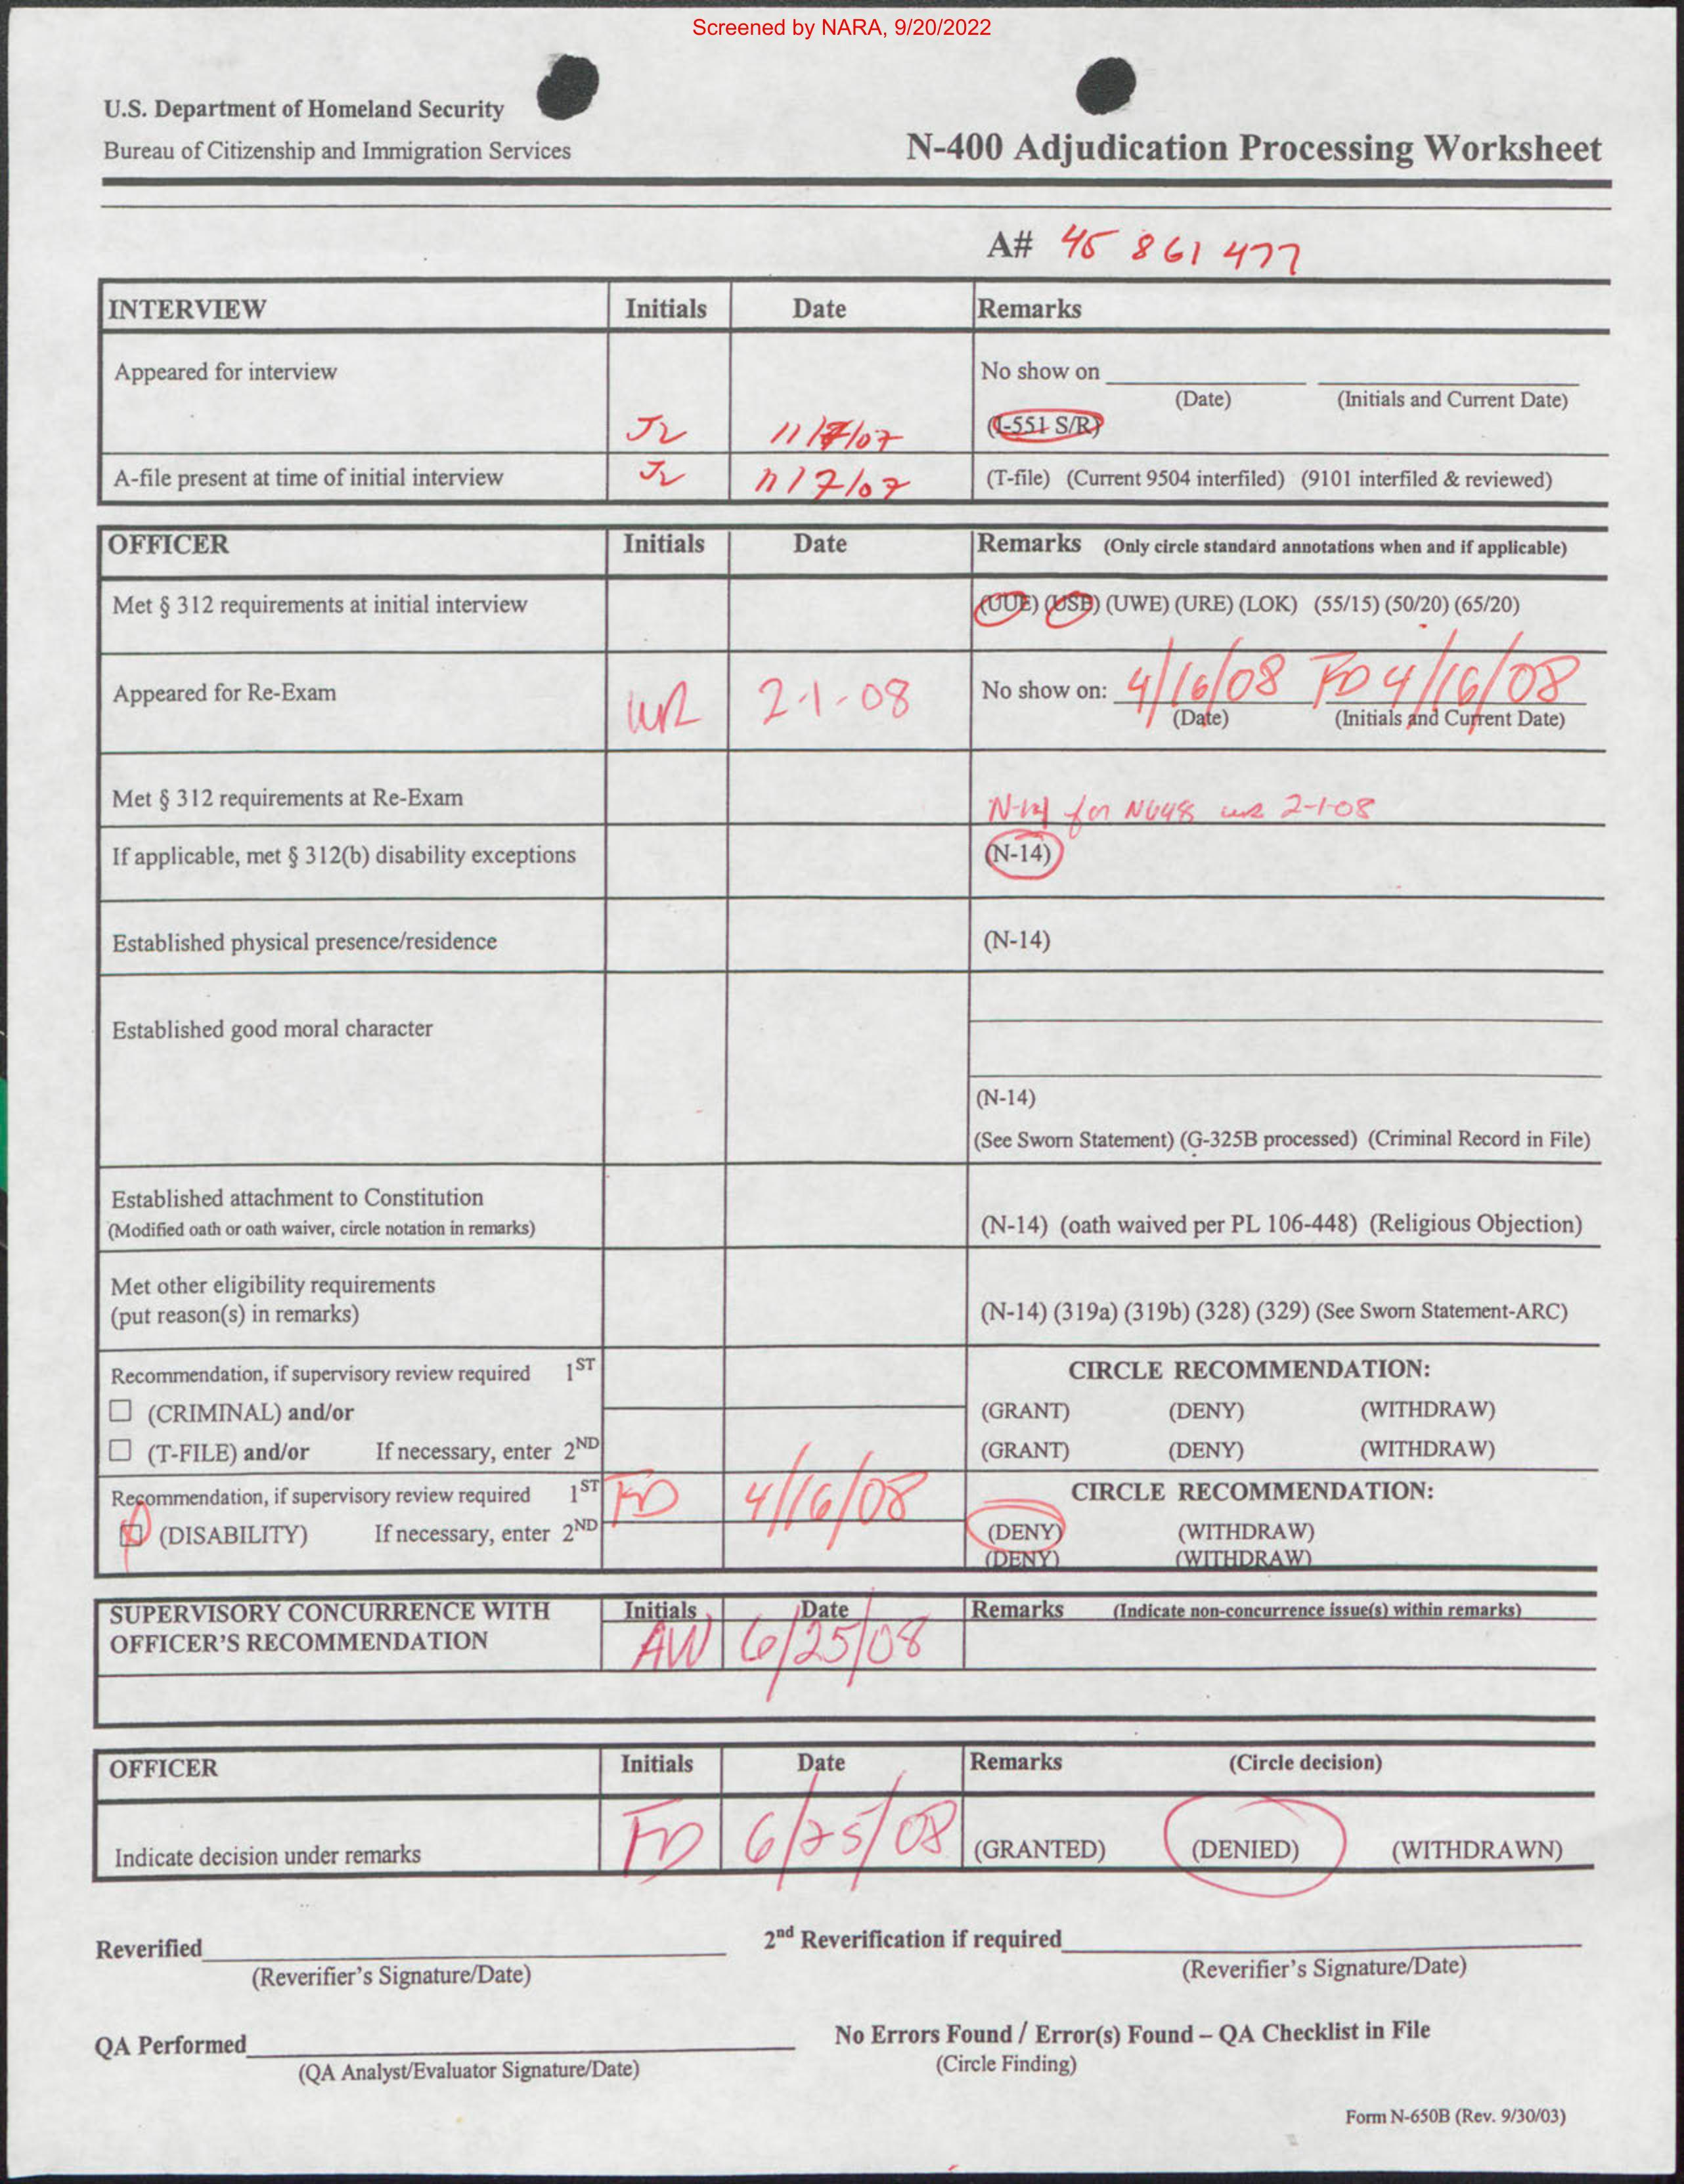 Screened by NARA, 9/20/2022
U.S. Department of Homeland Security
Bureau of Citizenship and Immigration Services
N-400 Adjudication Processing Worksheet
A# 45 861 477
INTERVIEW Initials Date Remarks
Appeared for interview No show on
(Date) (Initials and Current Date)
JL 11/7/07 (I-551 S/R)
A-file present at time of initial interview JL 11/7/07 (T-file) (Current 9504 interfiled) (9101 interfiled & reviewed)
OFFICER Initials Date Remarks (Only circle standard annotations when and if applicable)
Met § 312 requirements at initial interview (UUE) (USE) (UWE) (URE) (LOK) (55/15) (50/20) (65/20)
Appeared for Re-Exam WR 2-1-08 No show on: 4/16/08 FD 4/16/08
(Date) (Initials and Current Date)
Met § 312 requirements at Re-Exam N-14 for N648 WR 2-1-08
If applicable, met § 312(b) disability exceptions (N-14)
Established physical presence/residence (N-14)
Established good moral character
(N-14)
(See Sworn Statement) (G-325B processed) (Criminal Record in File)
Established attachment to Constitution
(Modified oath or oath waiver, circle notation in remarks) (N-14) (oath waived per PL 106-448) (Religious Objection)
Met other eligibility requirements
(put reason(s) in remarks) (N-14) (319a) (319b) (328) (329) (See Sworn Statement-ARC)
Recommendation, if supervisory review required 1ST CIRCLE RECOMMENDATION:
(CRIMINAL) and/or (GRANT) (DENY) (WITHDRAW)
(T-FILE) and/or If necessary, enter 2ND (GRANT) (DENY) (WITHDRAW)
Recommendation, if supervisory review required 1ST FD 4/16/08 CIRCLE RECOMMENDATION:
(DISABILITY) If necessary, enter 2ND (DENY) (WITHDRAW)
(DENY) (WITHDRAW)
SUPERVISORY CONCURRENCE WITH Initials Date Remarks (Indicate non-concurrence issue(s) within remarks)
OFFICER'S RECOMMENDATION AW 6/25/08
OFFICER Initials Date Remarks (Circle decision)
Indicate decision under remarks FD 6/25/08 (GRANTED) (DENIED) (WITHDRAWN)
Reverified 2nd Reverification if required
(Reverifier's Signature/Date) (Reverifier's Signature/Date)
QA Performed No Errors Found / Error(s) Found – QA Checklist in File
(QA Analyst/Evaluator Signature/Date) (Circle Finding)
Form N-650B (Rev. 9/30/03)